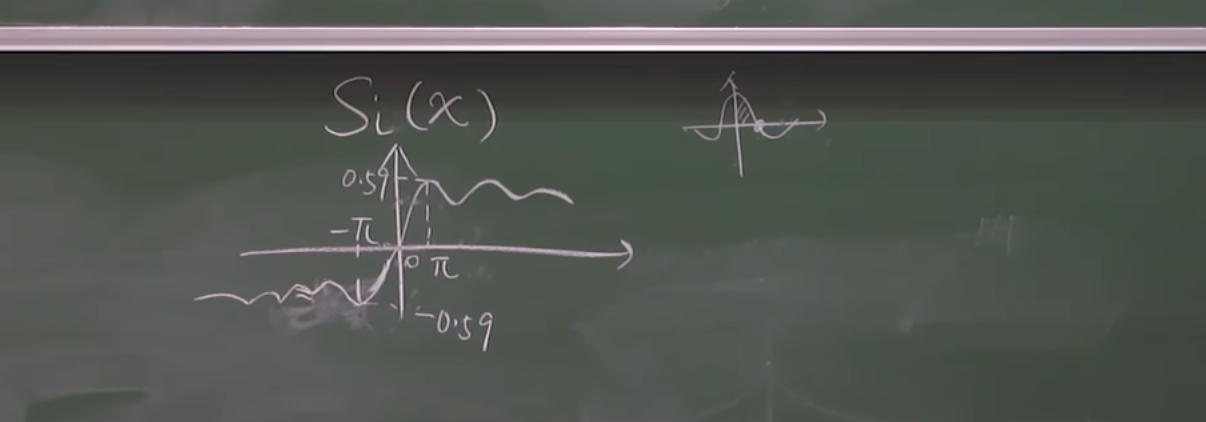 Si(x)
0.59
-π
0 π
-0.59